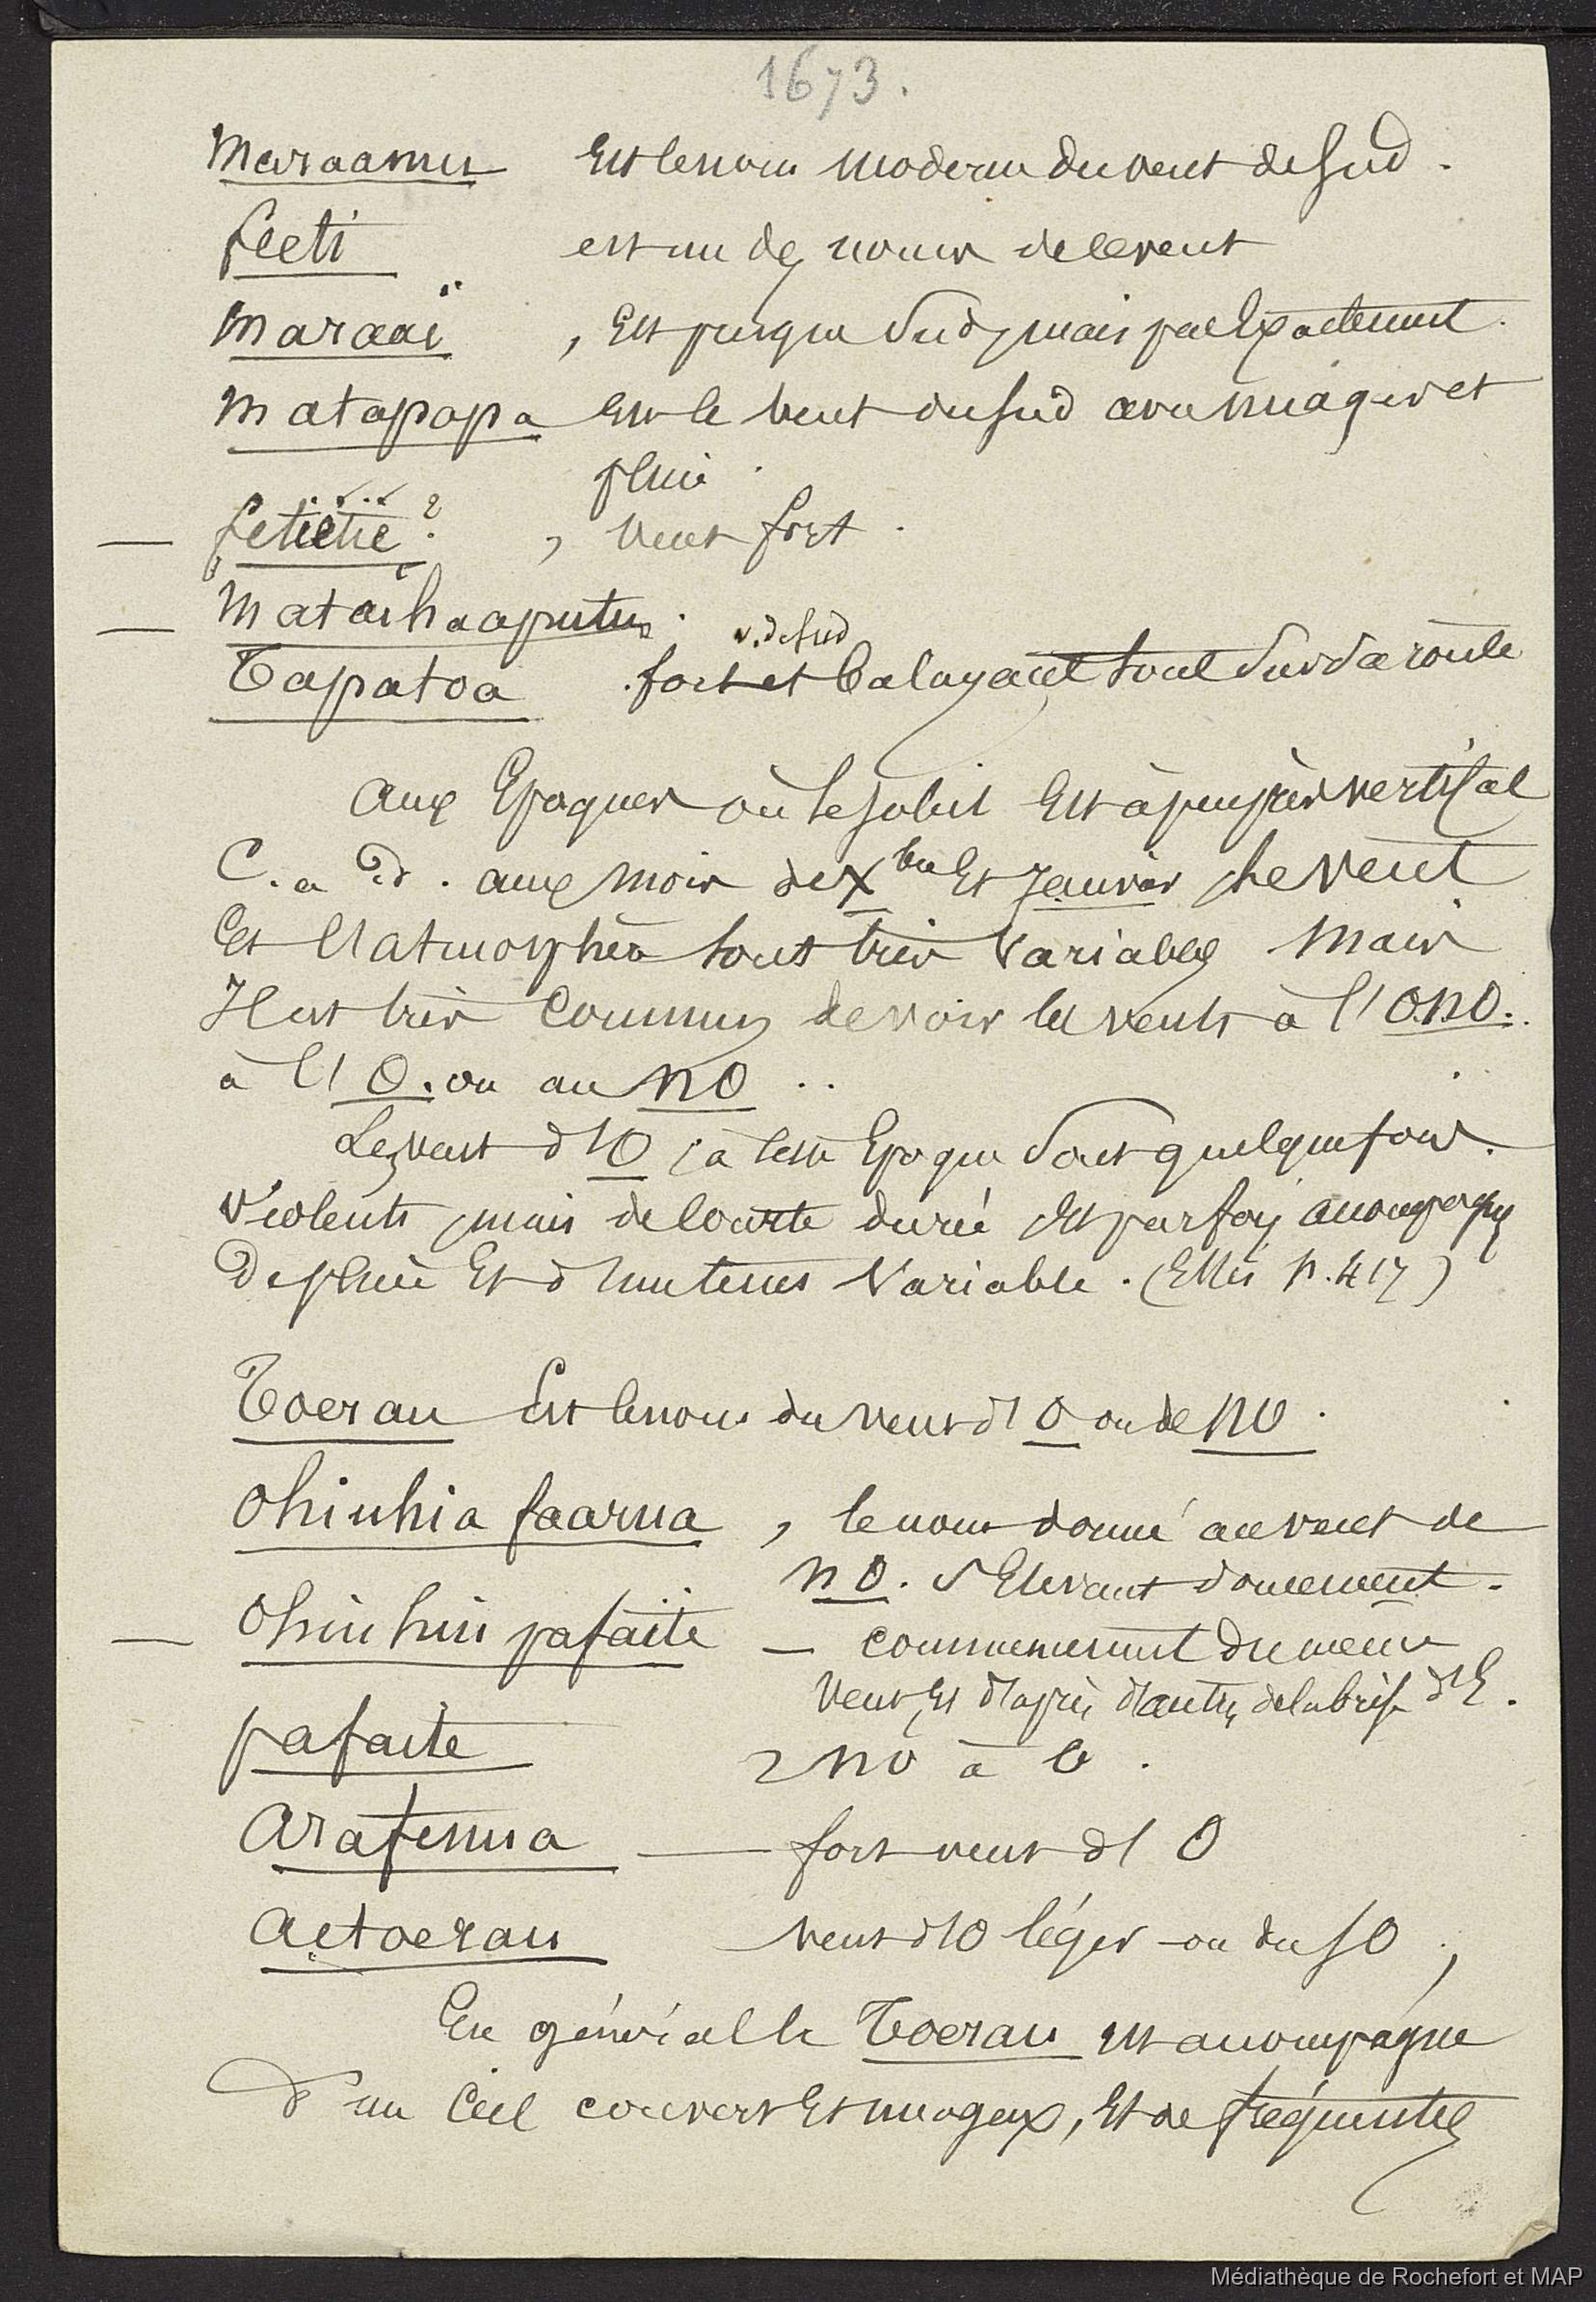 1673.
Maraamu Est le nom moderne du vent de Sud.
feeti est un des noms de ce vent
Maraai , Est presque Sud, mais pas Exactement.
Matapapa Est le vent du Sud avec nuages et
pluie.
— fetietie ? , Vent fort.
— Mataihaaputu.
v. de Sud
Tapatoa fort et balayant tout Sur Sa route
Aux Epoques où le soleil Est à peu près vertical
C. a. d. aux mois de Xbre Et Janvier, Le vent
Et l'atmosphère sont très Variables mais
Il est très Commun de voir les vents à l'ONO.
à l'O. ou au NO ..
Les vents d'O, à cette Epoque Sont quelquefois.
Violents, mais de courte durée, Et parfois accompagnés
De pluie Et d'un tems Variable. (Ellis p. 417)
Toerau Est le nom du vent d'O ou de NO.
Ohiuhia faarua , le nom donné au vent de
NO. S'Elevant doucement.
— Ohiuhiu pafaite — commencement du même
Vent, Et d'après d'autres, de la brise d'E.
pafaite , NO à O.
Arafenua — fort vent d'O
Aetoerau vent d'O léger ou du SO ,
En général le Toerau est accompagné
d'un Ciel couvert Et nuageux, Et de fréquentes
Médiathèque de Rochefort et MAP